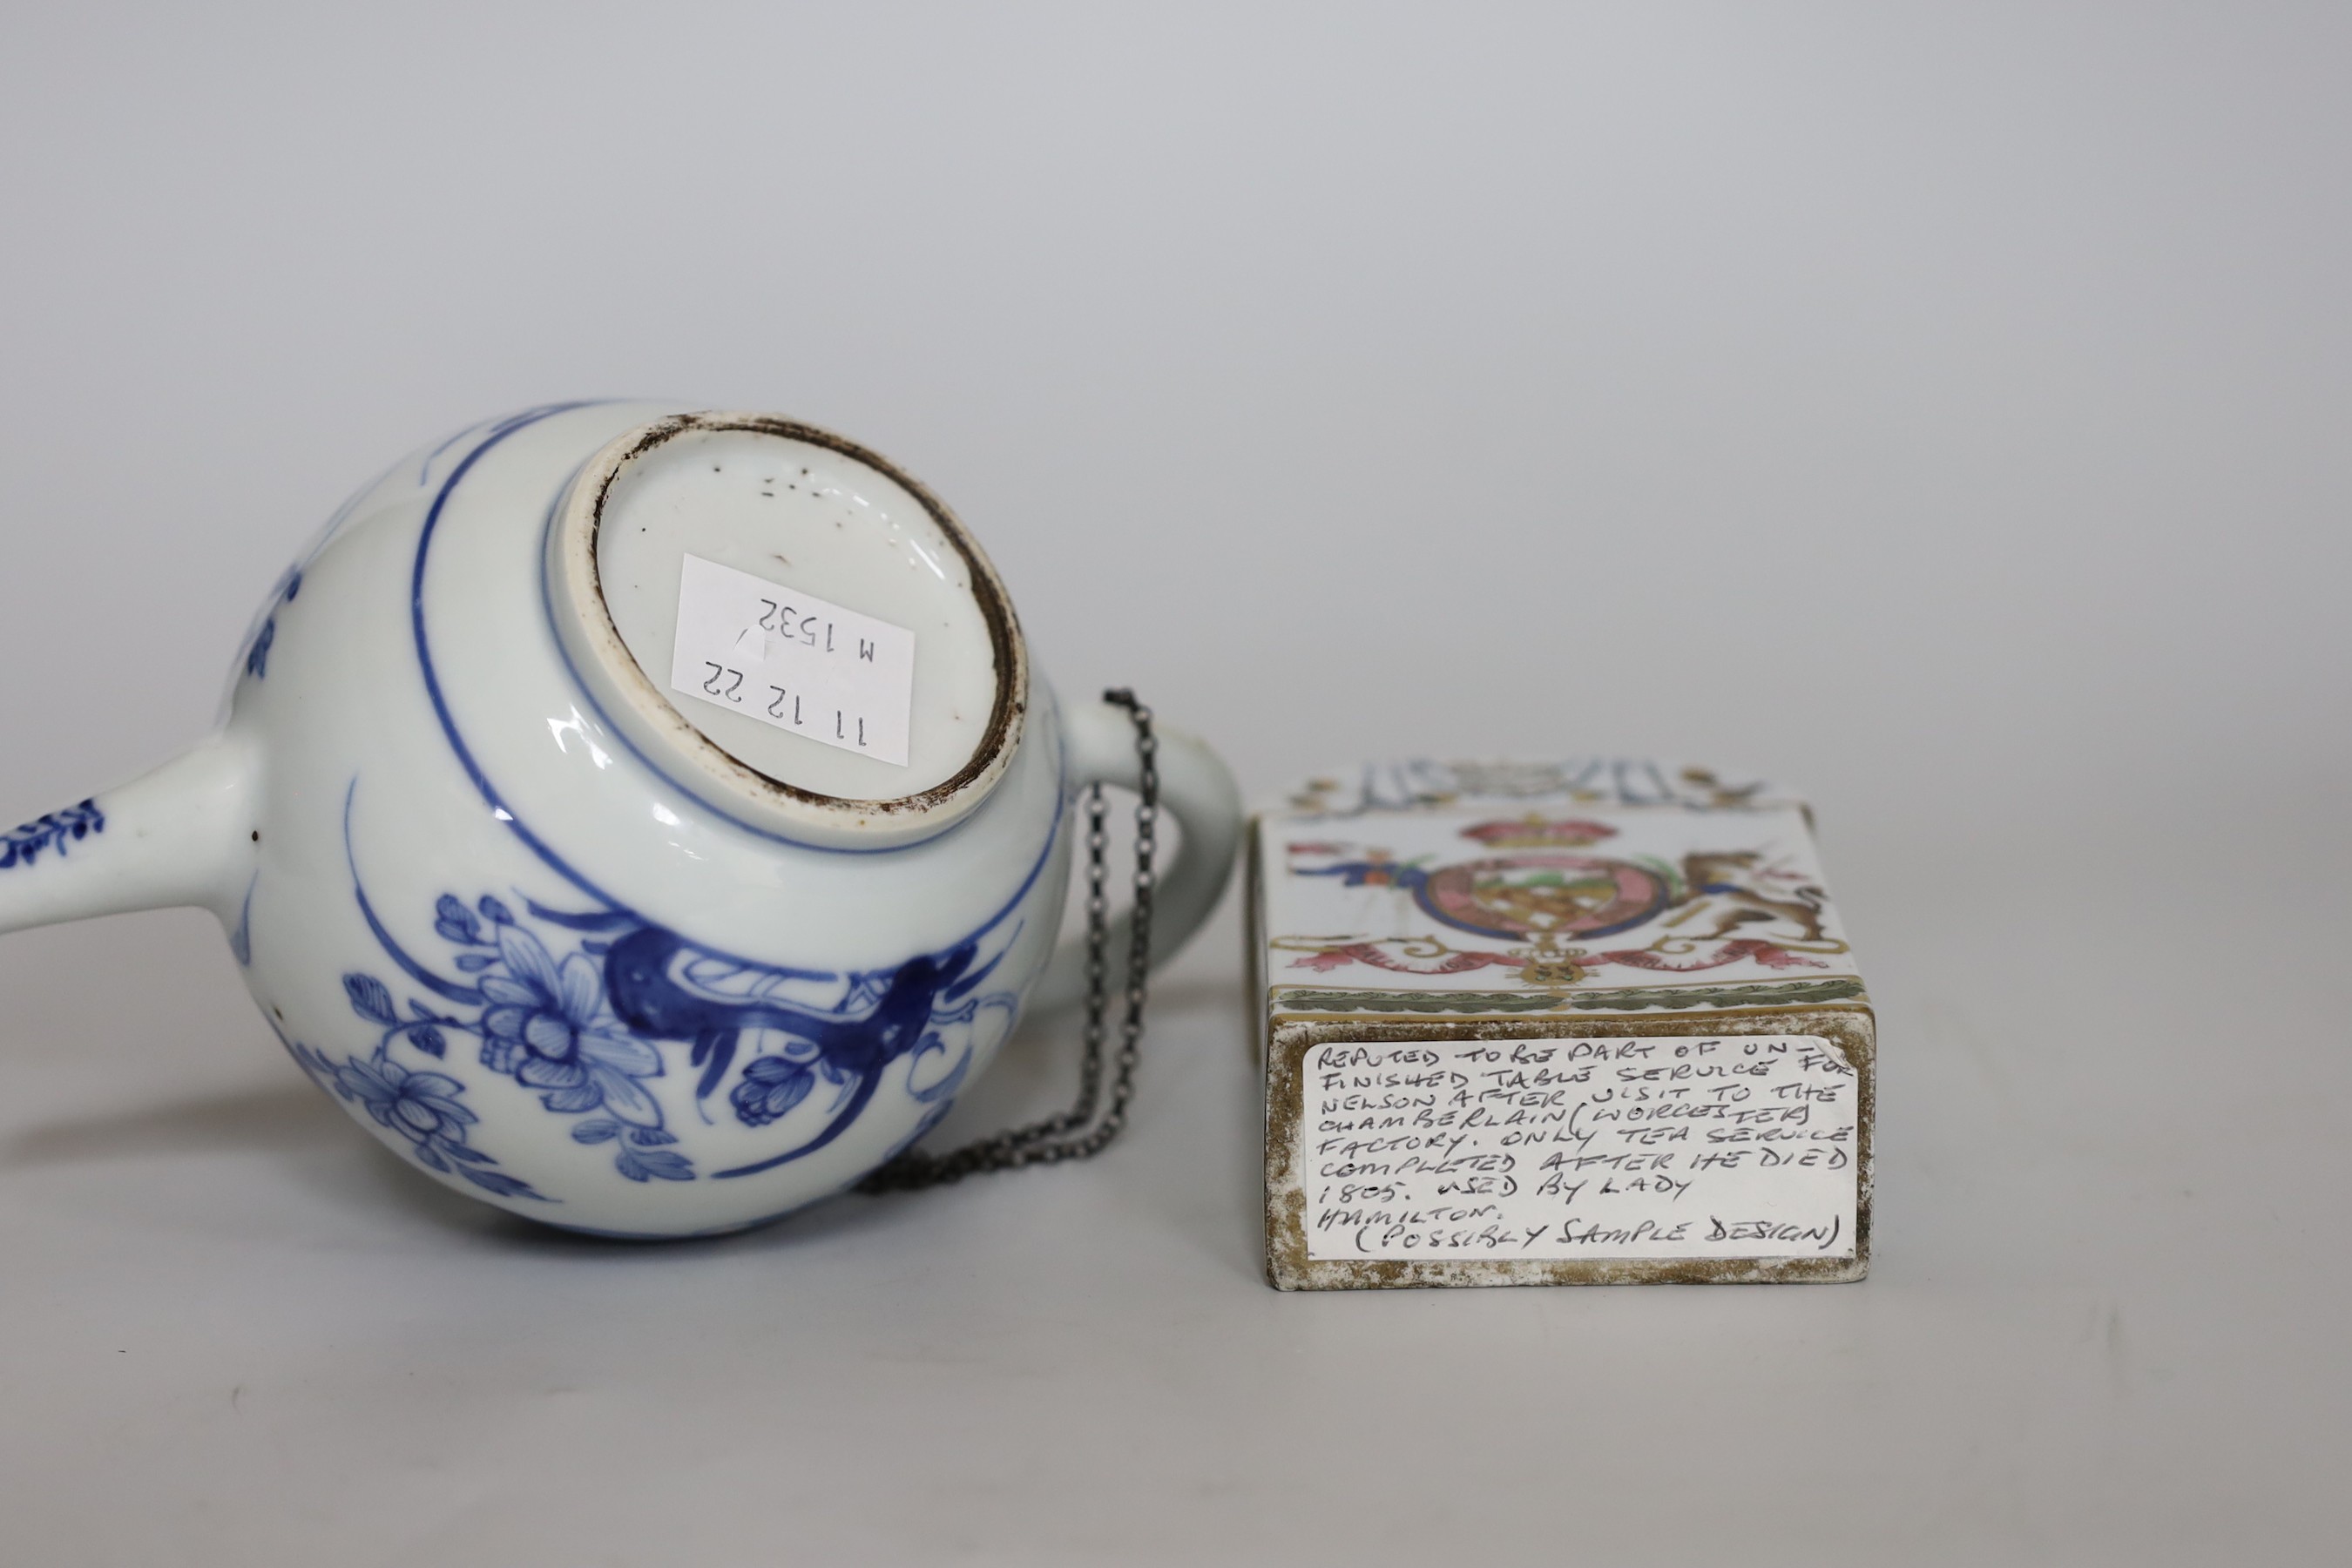 M 1532
11 12 22
REPUTED TO BE PART OF UN-
FINISHED TABLE SERVICE FOR
NELSON AFTER VISIT TO THE
CHAMBERLAIN (WORCESTER)
FACTORY. ONLY TEA SERVICE
COMPLETED AFTER HE DIED
1805. USED BY LADY
HAMILTON.
(POSSIBLY SAMPLE DESIGN)